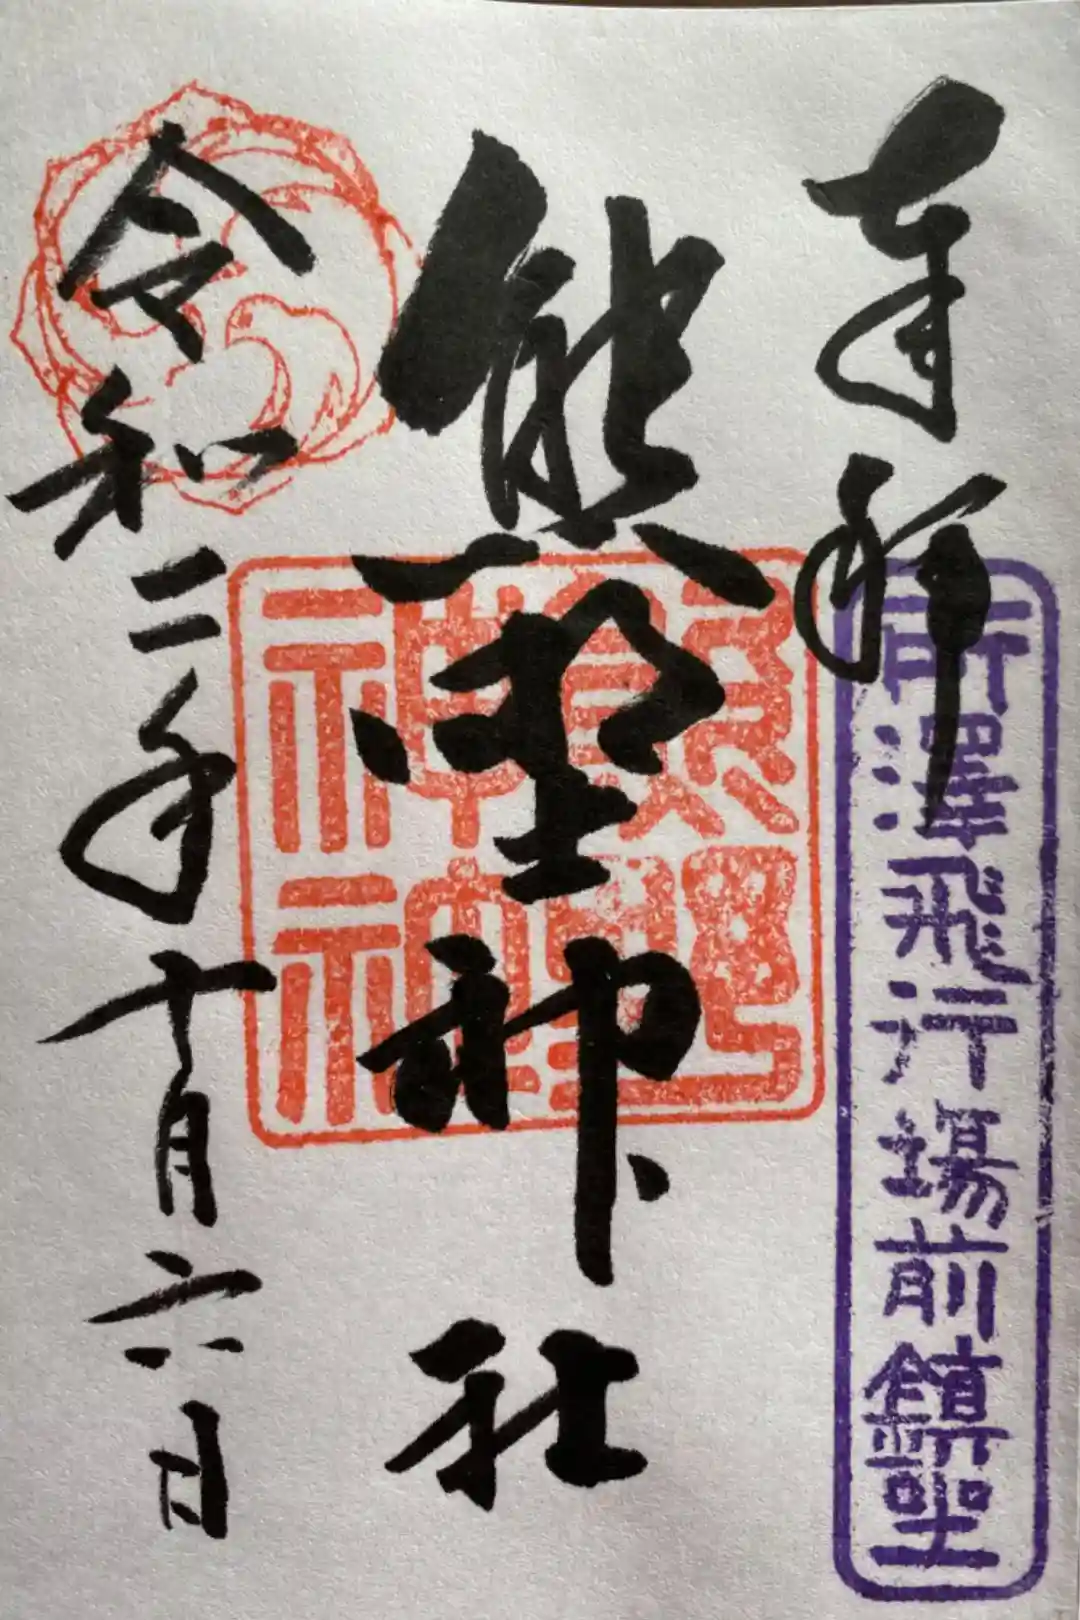 奉拝
所澤飛行場前鎮坐
熊野神社
熊野神社
令和二年十月六日